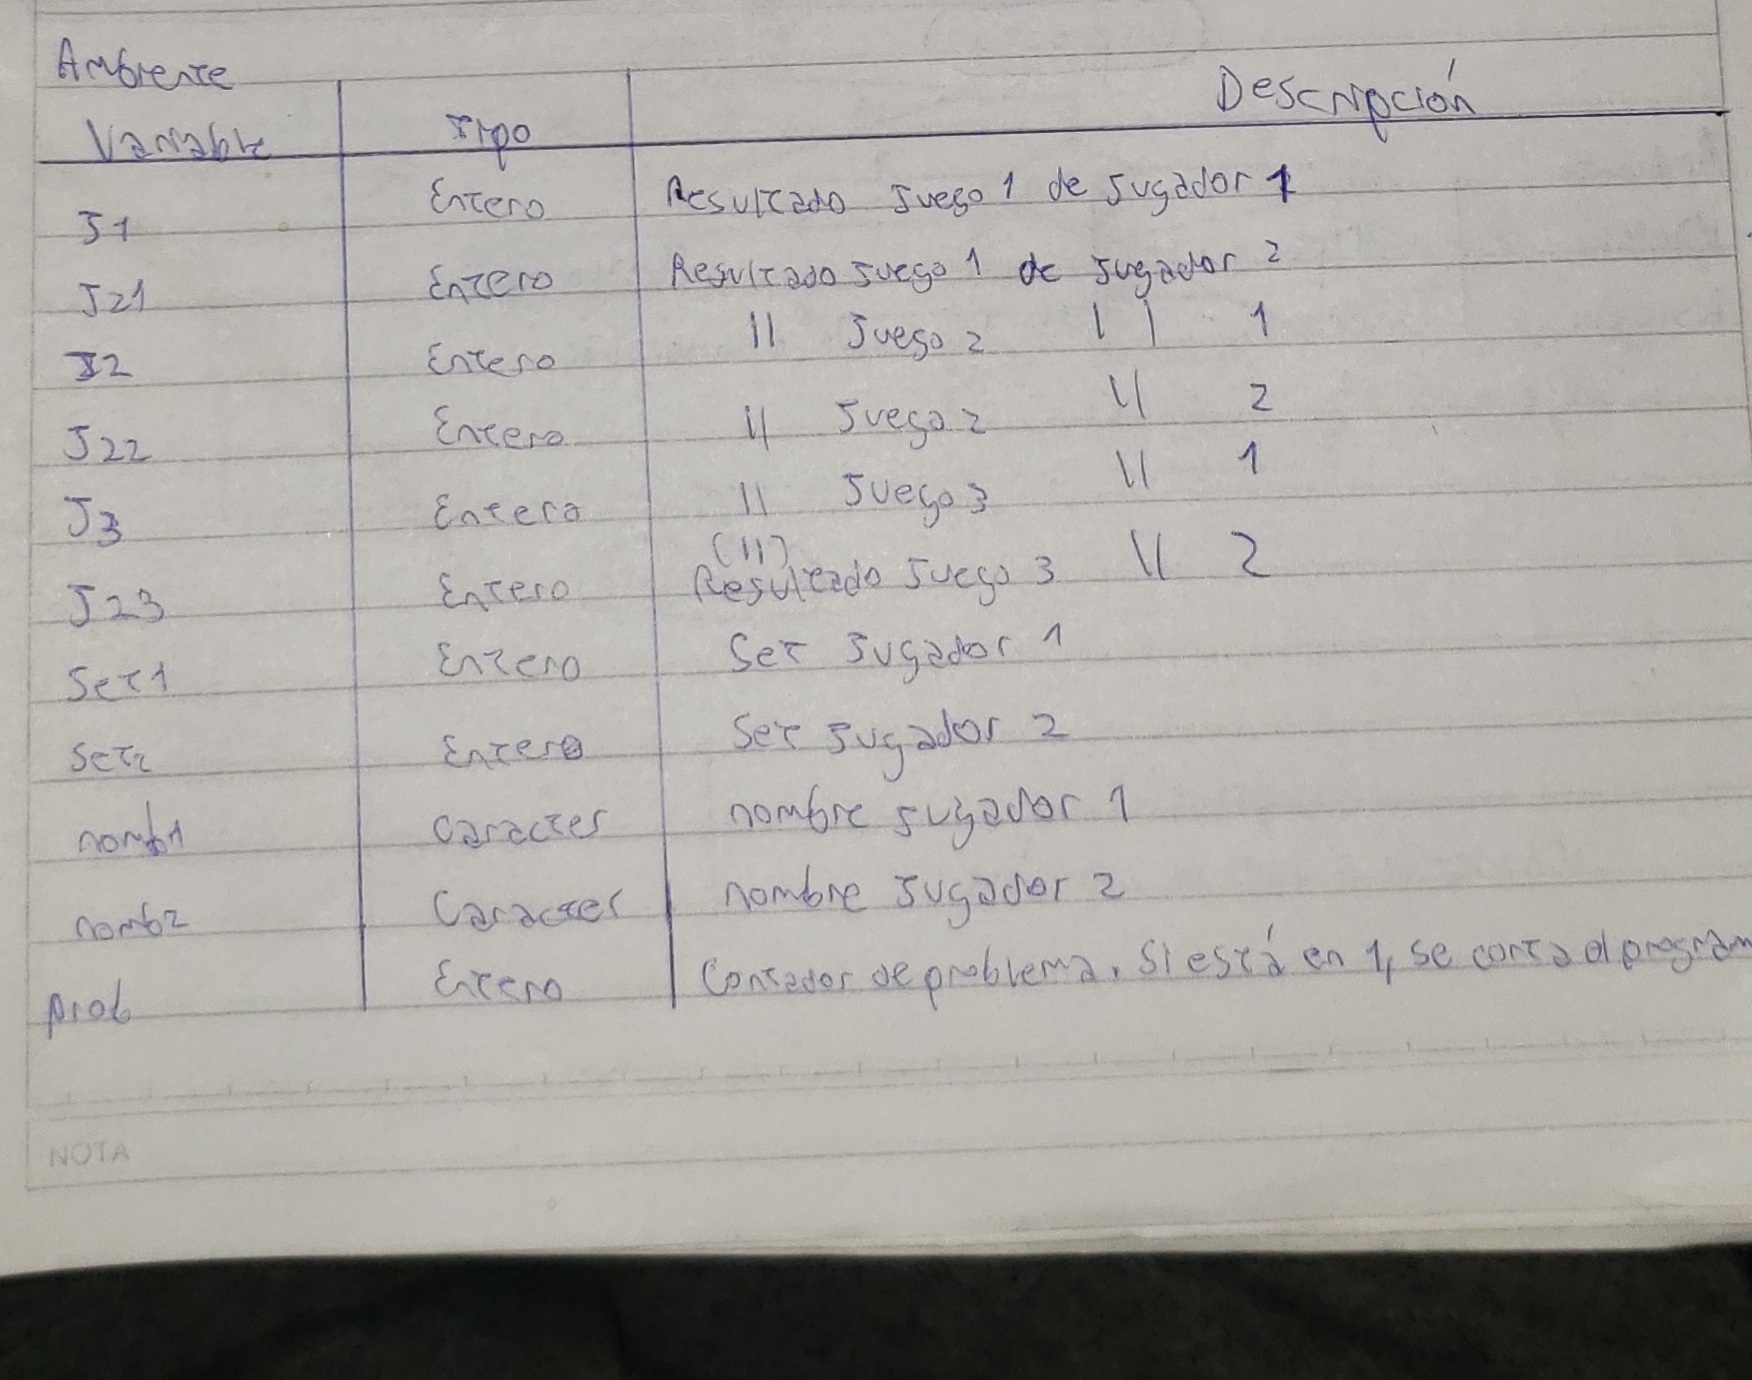 Ambiente
Variable Tipo Descripción
J1 Entero Resultado Juego 1 de Jugador 1
J21 Entero Resultado Juego 1 de Jugador 2
J2 Entero || Juego 2 || 1
J22 Entero || Juego 2 || 2
J3 Entero || Juego 3 || 1
(||)
J23 Entero Resultado Juego 3 || 2
Set1 Entero Set Jugador 1
Set2 Entero Set Jugador 2
nomb1 Caracter nombre jugador 1
nomb2 Caracter nombre Jugador 2
prob Entero Contador de problema. Si está en 1, se corta el program
NOTA